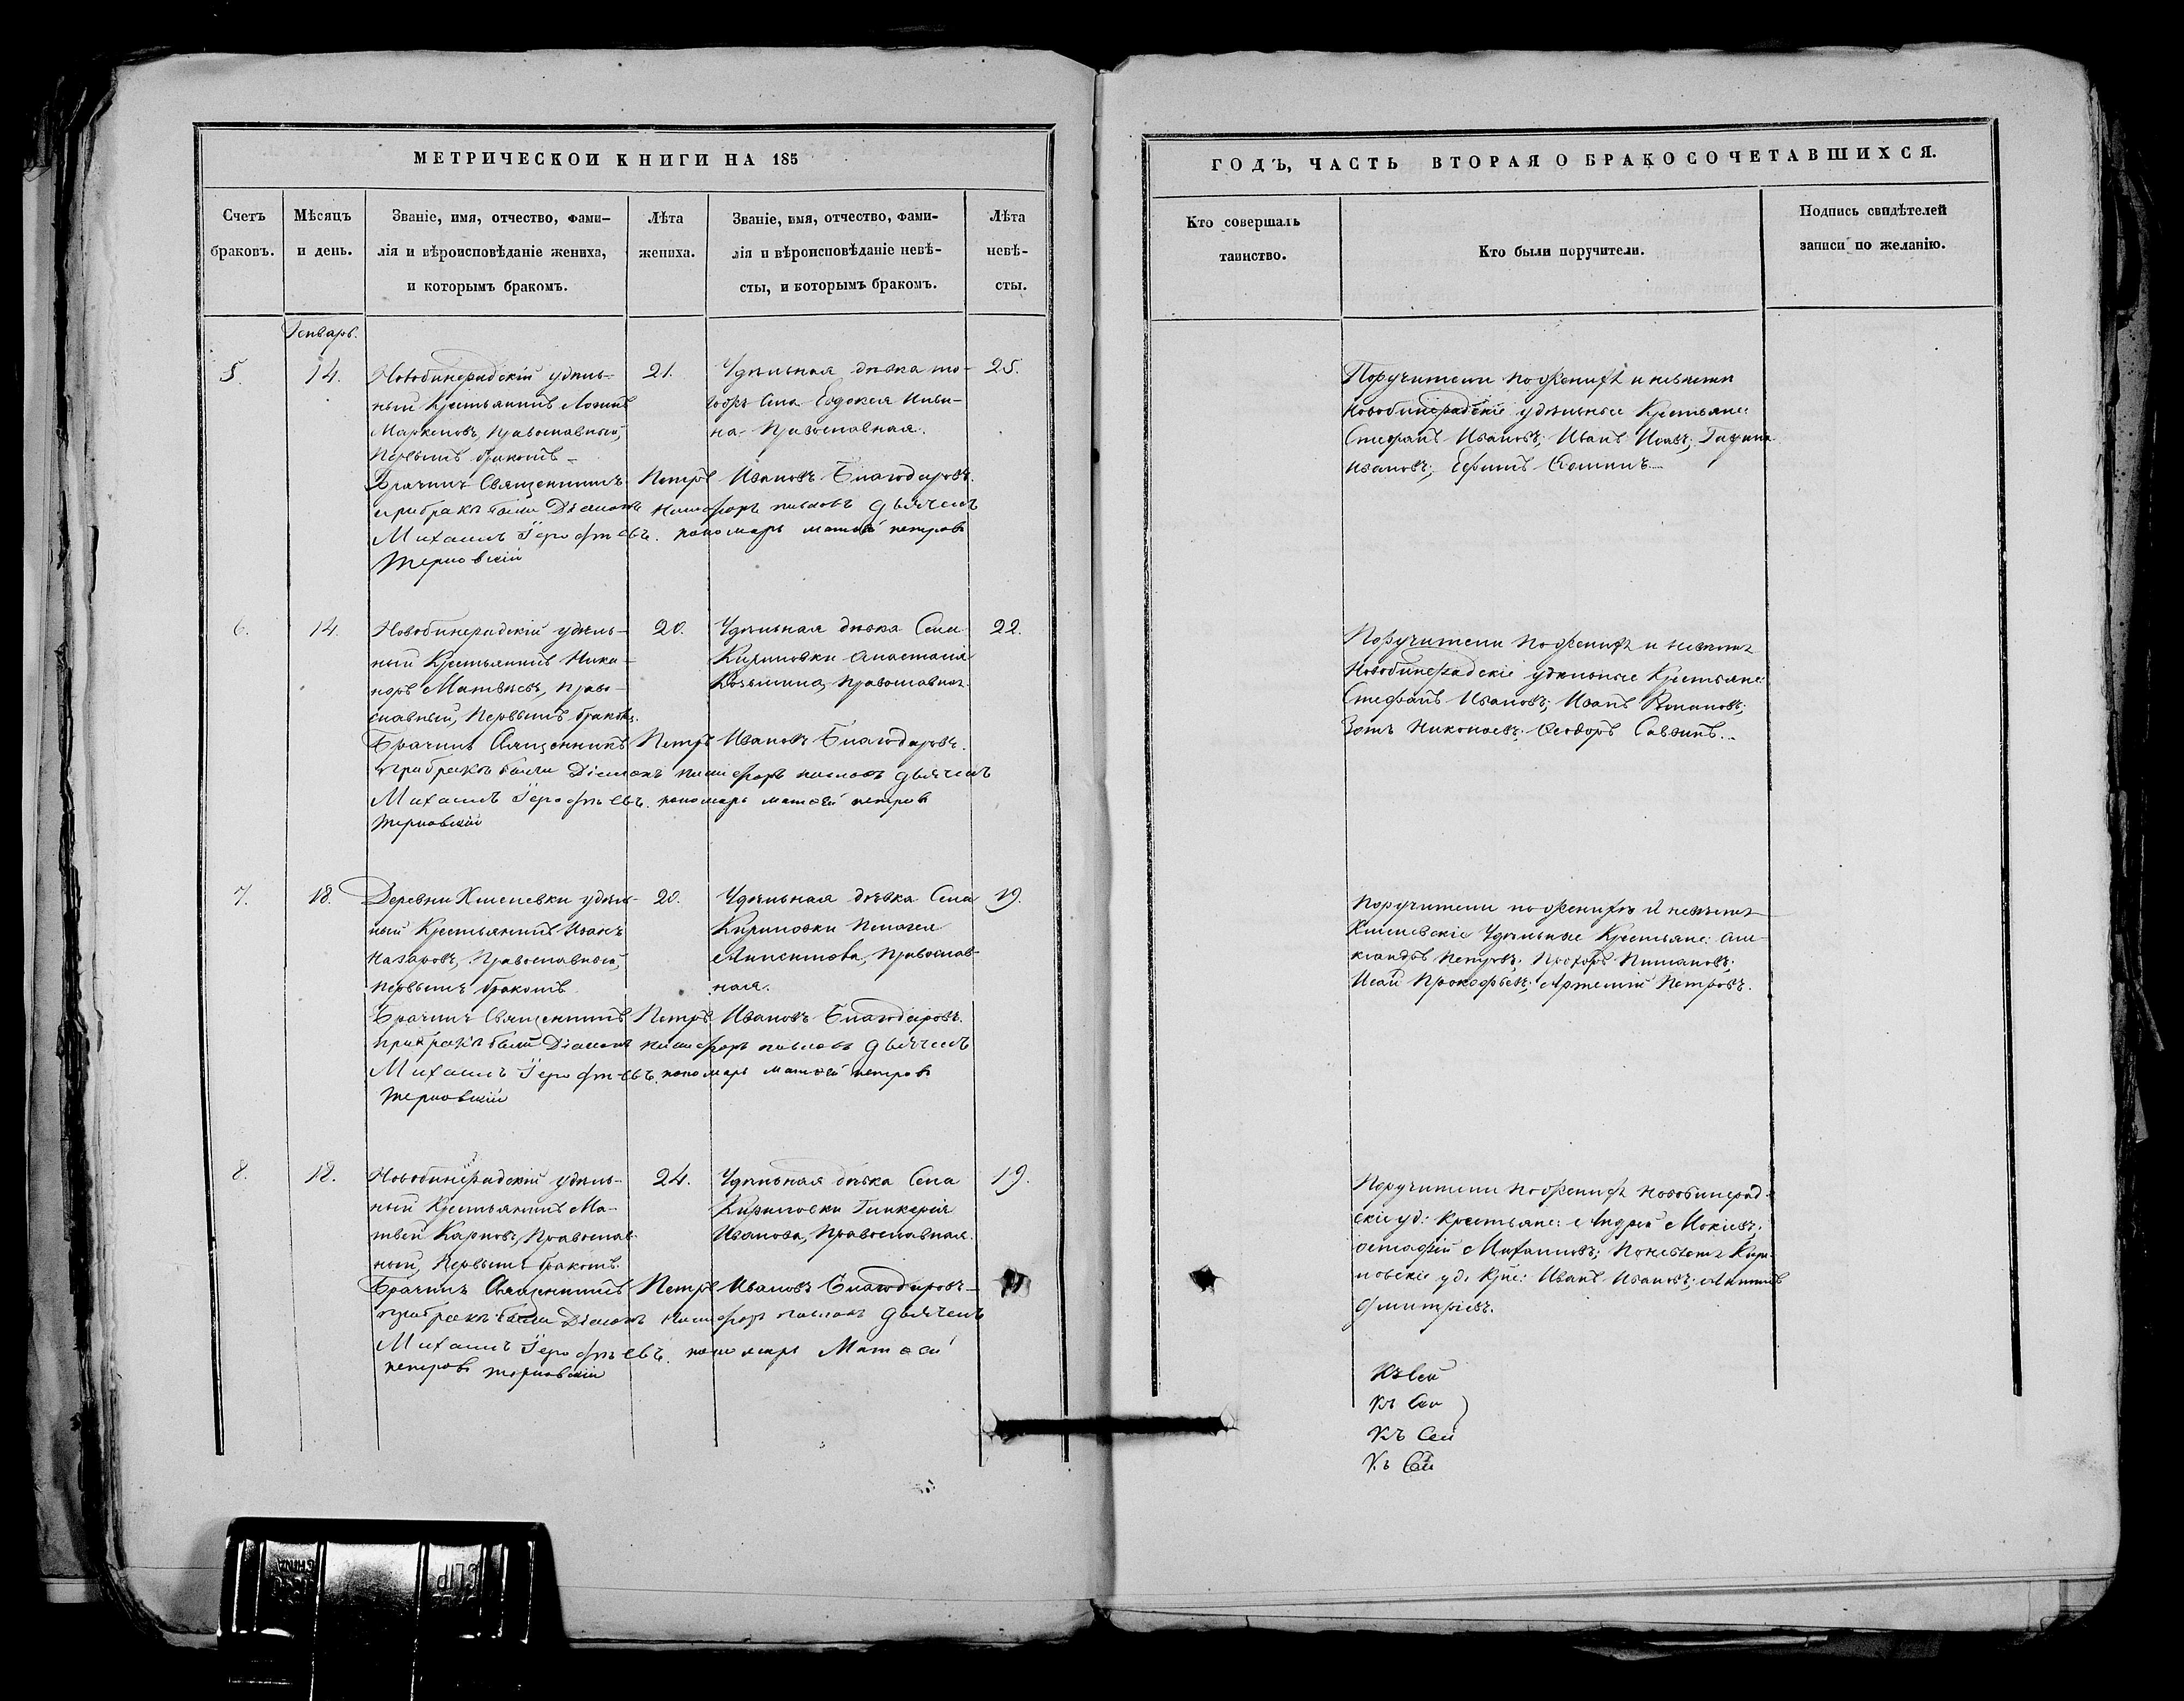 МЕТРИЧЕСКОЙ КНИГИ НА 185
Счетъ браковъ.
Мѣсяцъ и день.
Званіе, имя, отчество, фами-
лія и вѣроисповѣданіе жениха,
и которымъ бракомъ.
Лѣта
жениха.
Званіе, имя, отчество, фами-
лія и вѣроисповѣданіе невѣ-
сты, и которымъ бракомъ.
Лѣта
невѣ-
сты.
Генварь.
5.
14.
Новобинерадскій удѣль-
ный Крестьянинъ
Маркеловъ, Православный,
первымъ бракомъ
21.
Удѣльная дѣвка то-
гожъ Села Евдокея
на Православная.
25.
Брачилъ Священникъ Петръ Ивановъ Благодаровъ.
при бракѣ были Діаконъ Никифоръ Павловъ дьячекъ
Михаилъ Іерофѣевъ. пономарь Матвей петровъ
Терновскій
6.
14.
Новобинерадскій удѣль-
ный Крестьянинъ Ника-
норъ Матвѣевъ, право-
славный, первымъ бракомъ.
20.
Удѣльная дѣвка Села
Кириловки Анастасія
Козьмина, Православная
22.
Брачилъ Священникъ Петръ Ивановъ Благодаровъ.
при бракѣ были Діаконъ никифоръ павловъ дьячекъ
Михаилъ Іерофѣевъ. пономарь матвей петровъ
терновскій
7.
18.
Деревни Хилевки удѣль-
ный Крестьянинъ Иванъ
Назаровъ, Православный,
первымъ бракомъ
20.
Удѣльная дѣвка Села
Кириловки Пелагея
Анисимова, Православ-
ная.
19.
Брачилъ Священникъ Петръ Ивановъ Благодаровъ.
при бракѣ были Діаконъ никифоръ павловъ дьячекъ
Михаилъ Іерофѣевъ. пономарь матвей петровъ
терновскій
8.
18.
Новобинерадскій удѣль-
ный Крестьянинъ Ма-
твей Карповъ, Православ-
ный, Первымъ бракомъ.
24.
Удѣльная дѣвка Села
Кириловки Гликерія
Иванова, Православная.
19.
Брачилъ Священникъ Петръ Ивановъ Благодаровъ
при бракѣ были Діаконъ Никифоръ павловъ дьячекъ
Михаилъ Іерофѣевъ. пономарь Матвей
петровъ терновскій
ГОДЪ, ЧАСТЬ ВТОРАЯ О БРАКОСОЧЕТАВШИХСЯ.
Кто совершалъ
таинство.
Кто были поручители.
Подпись свидѣтелей
записи по желанію.
Поручители по женихѣ и невѣстѣ
Новобинерадскіе удѣльные Крестьяне:
Стефанъ Ивановъ; Иванъ
Ивановъ; Ефимъ
Поручители по женихѣ и невѣстѣ
Новобинерадскіе удѣльные Крестьяне:
Стефанъ Ивановъ; Иванъ Романовъ;
Зотъ Николаевъ; Ѳеодоръ Саввинъ.
Поручители по женихѣ и невѣстѣ
Хилевскіе Удѣльные Крестьяне: Але-
ксандръ Петровъ; Прохоръ
Исай Прокофьевъ; Артемій Петровъ.
Поручители по женихѣ Новобинерад-
скіе уд: Крестьяне: Андрей Мокіевъ;
Остафій Михайловъ; По невѣстѣ Кири-
ловскіе уд. Кре: Иванъ Ивановъ;
Дмитріевъ.
Къ Сей
Къ Сей
Къ Сей
Къ Сей